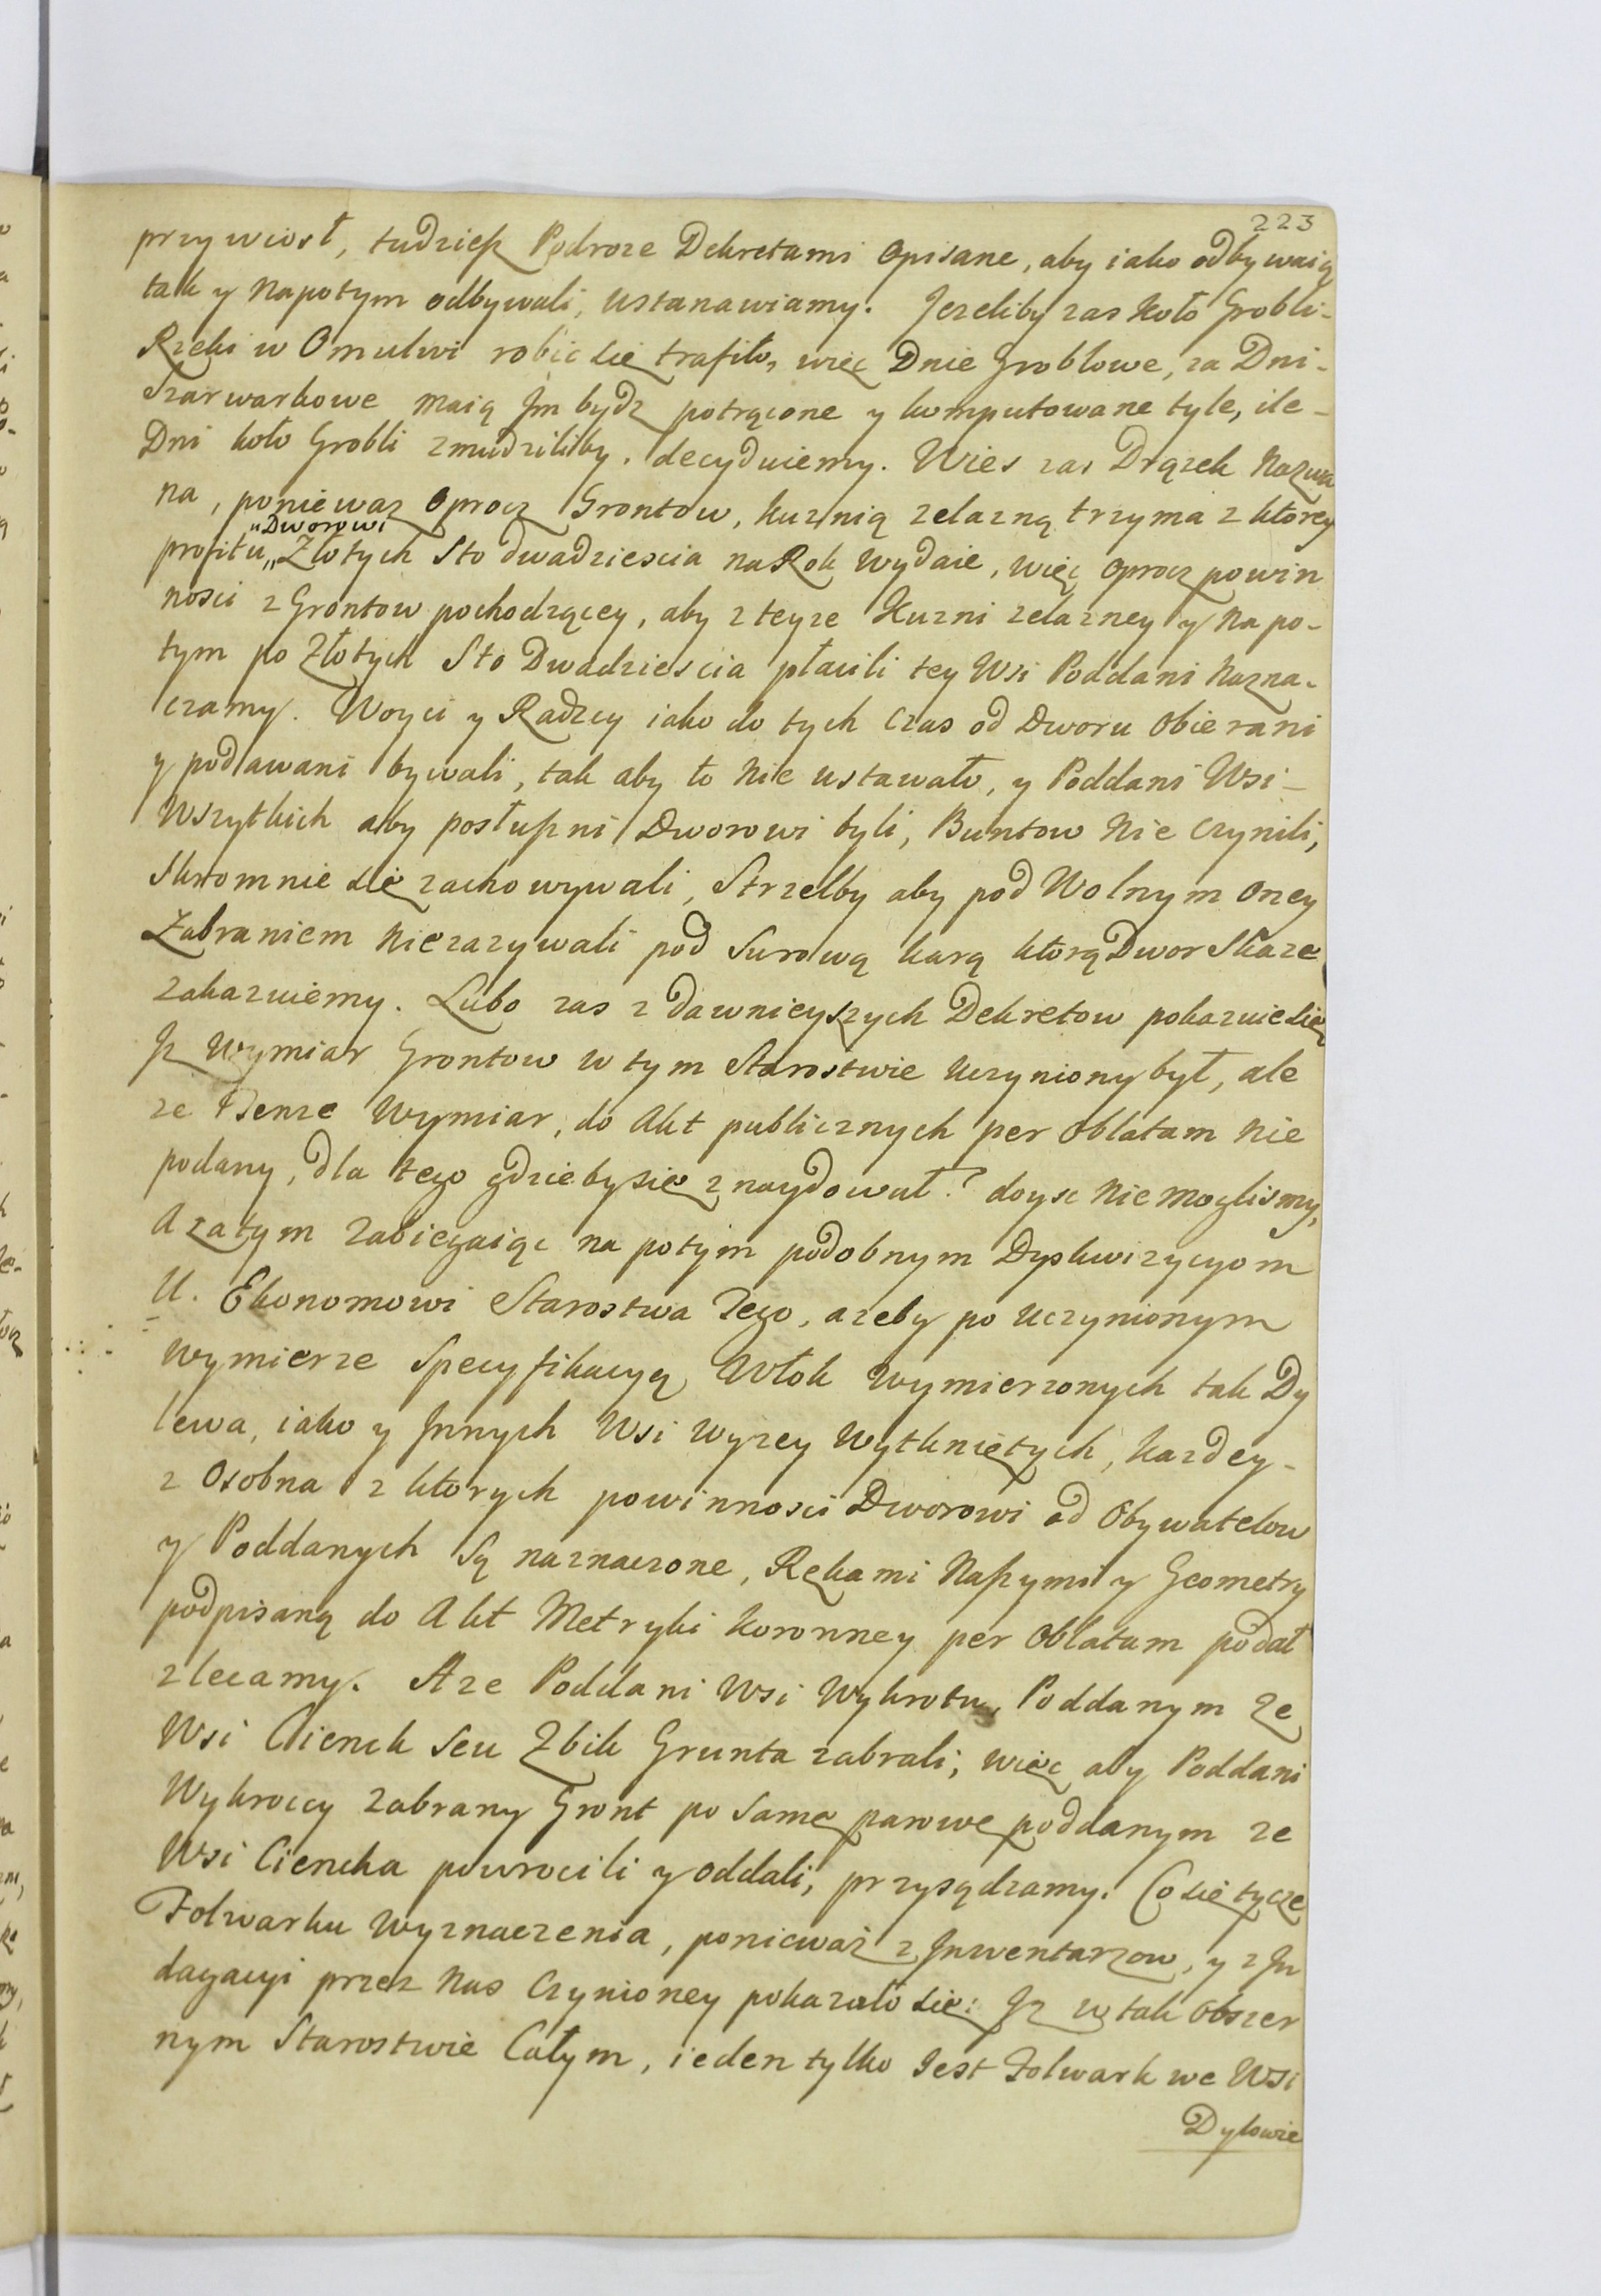 223
przywiosł, tudziesz Podroze Dekretami opisane, aby iako odbywaią
tak y napotym odbywali, ustanawiamy. Jezeliby zas koło Grobli-
Rzeki w Omulwi robic się trafiło, więc Dnie Groblowe, za Dni-
Szarwarkowe maią Jm bydz potrącone y komputowane tyle, ile-
Dni koło Grobli zmudziliby, decyduiemy. Wies zas Drązek nazwa
na, poniewaz oprocz Grontow, kuznią zelazną trzyma z ktorey
„Dworowi
profitu„ Złotych Sto dwadziescia na Rok wydaie, więc oprocz powin
nosci z Grontow pochodzącey, aby z teyze Kuzni zelazney y na po-
tym po Złotych Sto Dwadziescia płacili tey Wsi Poddani nazna-
czamy. Woyci y Radzcy iako do tych czas od Dworu obierani
y podawani bywali, tak aby to nie ustawało, y Poddani Wsi-
Wszytkich aby posłuszni Dworowi byli, Buntow nie czynili,
skromnie się zachowywali, Strzelby aby pod Wolnym oney
Zabraniem niezazywali pod surową karą ktorą Dwor Skaze
zakazuiemy. Lubo zas z dawnieyszych Dekretow pokazuie się
Jz wymiar Grontow w tym Starostwie uczyniony był, ale
ze tenze wymiar, do Akt publicznych per oblatam nie
podany, dla tego gdzieby się znaydował? doysc nie moglismy,
A zatym zabiegaiąc na potym podobnym Dyskwizycyom
U. Ekonomowi Starostwa tego, azeby po uczynionym
wymierze specyfikacyą Włok wymierzonych tak Dy
lewa, iako y Jnnych Wsi wyzey wytkniętych, kazdey-
z osobna z ktorych powinnosci Dworowi od Obywatelow
y Poddanych są naznaczone, Rękami Naszymi y Geometry
podpisaną do Akt Metryki Koronney per oblatam podał
zlecamy. A ze Poddani Wsi Wykrotu, Poddanym ze
Wsi Cienek seu Zbik Grunta zabrali; więc aby Poddani
Wykroccy zabrany Gront po samę parowę poddanym ze
Wsi Ciencka powrocili y oddali, przysądzamy. Co się tycze
Folwarku wyznaczenia, poniewaz z Jnwentarzow, y z Jn
dagacyi przez nas czynioney pokazało się: Jz w tak obszer
nym Starostwie Całym, ieden tylko jest Folwark we Wsi
Dylowie